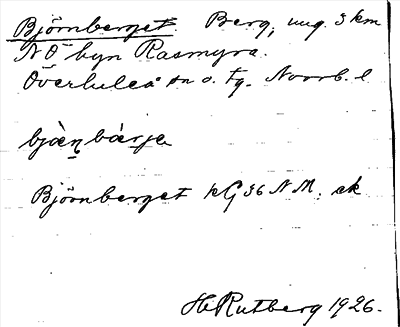 Björnberget. Berg, ung. 3 km
NÖ byn Rasmyra.
Överluleå sn o. tg. Norrb. l
bjὰn̥bὰrja
Björnberget kG 36 NM. ek
H Rutberg 1926.